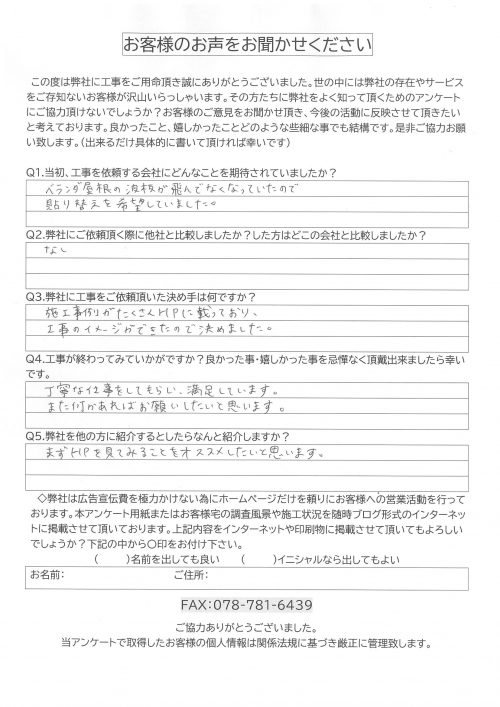 お客様のお声をお聞かせください
この度は弊社に工事をご用命頂き誠にありがとうございました。世の中には弊社の存在やサービス
をご存知ないお客様が沢山いらっしゃいます。その方たちに弊社をよく知って頂くためのアンケート
にご協力頂けないでしょうか？お客様のご意見をお聞かせ頂き、今後の活動に反映させて頂きたい
と考えております。良かったこと、嬉しかったことどのような些細な事でも結構です。是非ご協力お願
い致します。（出来るだけ具体的に書いて頂ければ幸いです）
Q1.当初、工事を依頼する会社にどんなことを期待されていましたか？
ベランダ屋根の波板が飛んでなくなっていたので
貼り替えを希望していました。
Q2.弊社にご依頼頂く際に他社と比較しましたか？した方はどこの会社と比較しましたか？
なし
Q3.弊社に工事をご依頼頂いた決め手は何ですか？
施工事例がたくさんHPに載っており、
工事のイメージができたので決めました。
Q4.工事が終わってみていかがですか？良かった事・嬉しかった事を忌憚なく頂戴出来ましたら幸い
です。
丁寧な仕事をしてもらい、満足しています。
また何かあればお願いしたいと思います。
Q5.弊社を他の方に紹介するとしたらなんと紹介しますか？
まずHPを見てみることをオススメしたいと思います。
◇弊社は広告宣伝費を極力かけない為にホームページだけを頼りにお客様への営業活動を行って
おります。本アンケート用紙またはお客様宅の調査風景や施工状況を随時ブログ形式のインターネッ
トに掲載させて頂いております。上記内容をインターネットや印刷物に掲載させて頂いてもよろしい
でしょうか？下記の中から〇印をお付け下さい。
（　　）名前を出しても良い　（　　）イニシャルなら出してもよい
お名前：　ご住所：
FAX：078-781-6439
ご協力ありがとうございました。
当アンケートで取得したお客様の個人情報は関係法規に基づき厳正に管理致します。